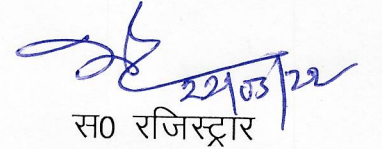 22/03/22
स0 रजिस्ट्रार